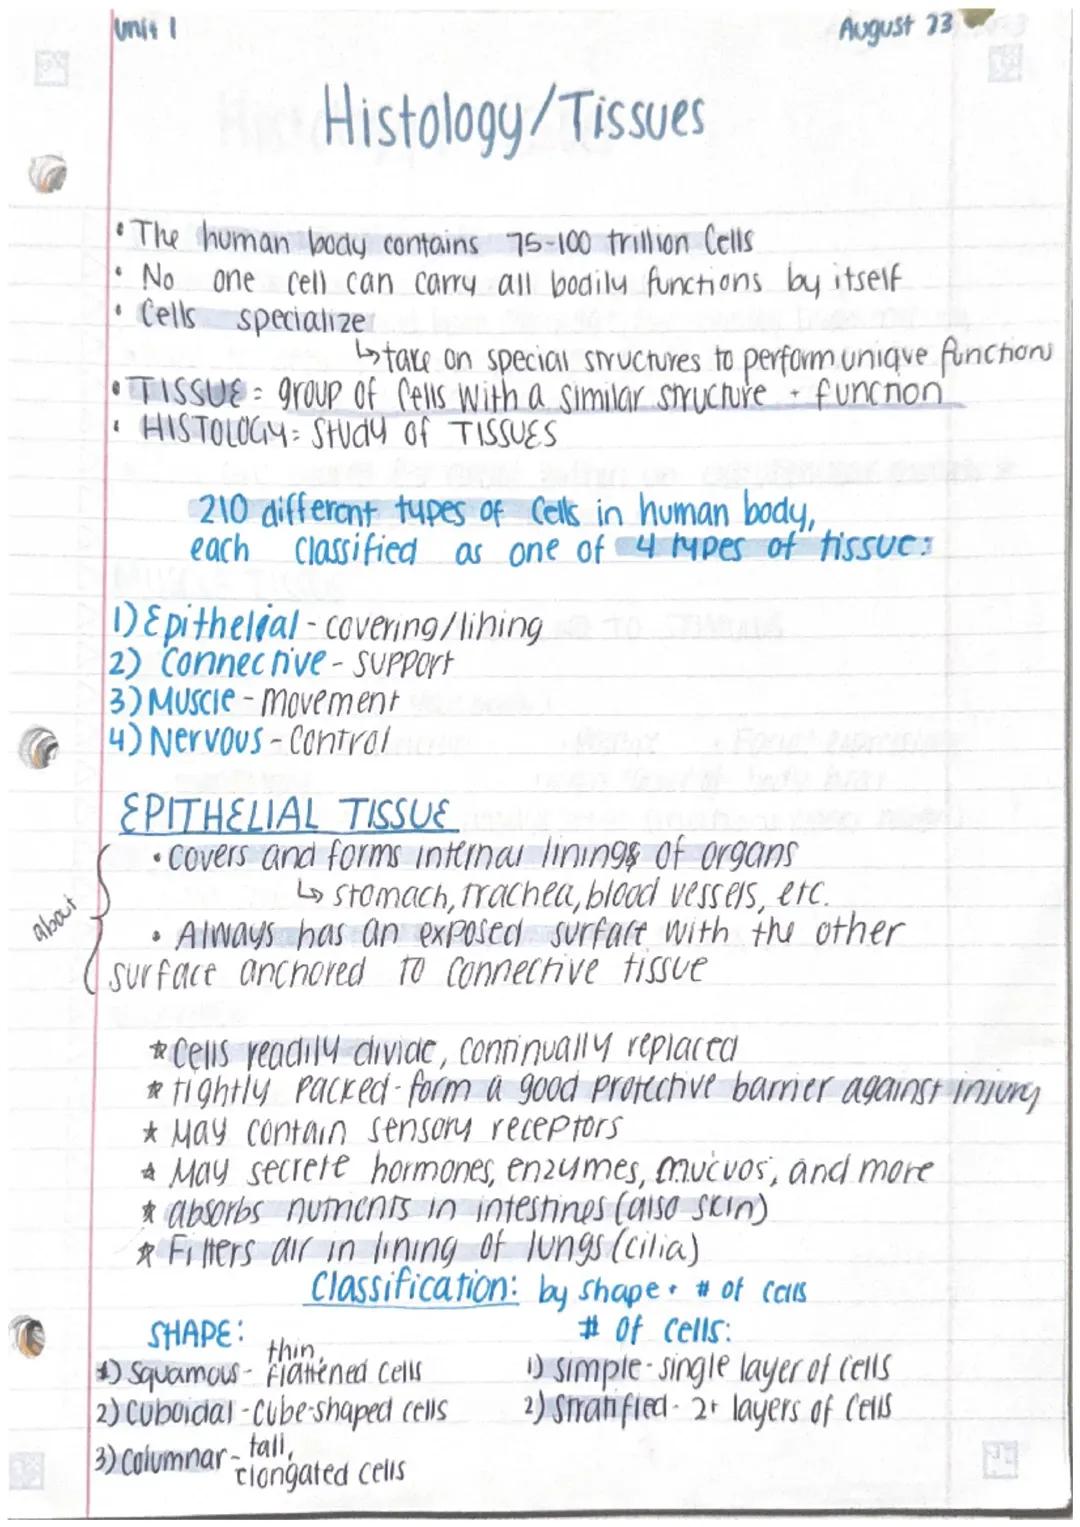 Unit 1
August 23
Histology/Tissues
• The human body contains 75-100 trillion Cells
• No one cell can carry all bodily functions by itself
• Cells specialize
↳ take on special structures to perform unique functions
• TISSUE = group of Cells with a similar structure + function
• HISTOLOGY = Study of TISSUES
210 different types of Cells in human body,
each Classified as one of 4 types of tissue:
1) Epithelial - covering/lining
2) Connective - support
3) Muscle - movement
4) Nervous - Control
EPITHELIAL TISSUE
about
• covers and forms internal linings of organs
↳ stomach, trachea, blood vessels, etc.
• Always has an exposed surface with the other
surface anchored to connective tissue
* Cells readily divide, continually replaced
* tightly packed - form a good protective barrier against injury
* May contain sensory receptors
* May secrete hormones, enzymes, mucuos, and more
* absorbs nutrients in intestines (also skin)
* Filters air in lining of lungs (cilia)
Classification: by shape + # of cells
SHAPE:
1) Squamous - thin, flattened cells
2) Cuboidal - Cube-shaped cells
3) Columnar - tall, elongated cells
# of cells:
1) simple - single layer of cells
2) Stratified - 2+ layers of cells